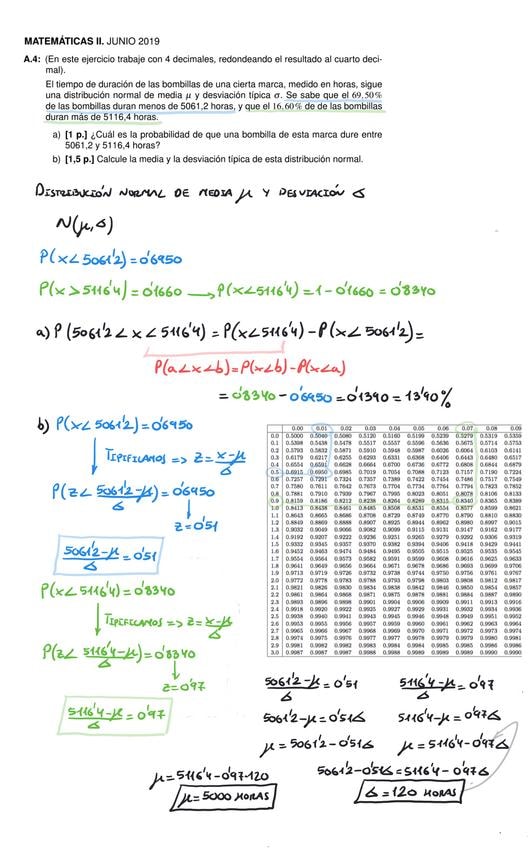 MATEMÁTICAS II. JUNIO 2019
A.4: (En este ejercicio trabaje con 4 decimales, redondeando el resultado al cuarto deci-
mal).
El tiempo de duración de las bombillas de una cierta marca, medido en horas, sigue
una distribución normal de media μ y desviación típica σ. Se sabe que el 69,50%
de las bombillas duran menos de 5061,2 horas, y que el 16,60% de de las bombillas
duran más de 5116,4 horas.
a) [1 p.] ¿Cuál es la probabilidad de que una bombilla de esta marca dure entre
5061,2 y 5116,4 horas?
b) [1,5 p.] Calcule la media y la desviación típica de esta distribución normal.
DISTRIBUCIÓN NORMAL DE MEDIA μ Y DESVIACIÓN σ
N(μ,σ)
P(x<5061'2)=0'6950
P(x>5116'4)=0'1660 → P(x<5116'4)=1-0'1660=0'8340
a) P(5061'2<x<5116'4)=P(x<5116'4)-P(x<5061'2)=
P(a<x<b)=P(x<b)-P(x<a)
=0'8340-0'6950=0'1390=13'90%
b) P(x<5061'2)=0'6950
TIPIFICAMOS => z=x-μ/σ
P(z<5061'2-μ/σ)=0'6950
z=0'51
5061'2-μ/σ=0'51
P(x<5116'4)=0'8340
TIPIFICAMOS => z=x-μ/σ
P(z<5116'4-μ/σ)=0'8340
z=0'97
5116'4-μ/σ=0'97
0.00 0.01 0.02 0.03 0.04 0.05 0.06 0.07 0.08 0.09
0.0 0.5000 0.5040 0.5080 0.5120 0.5160 0.5199 0.5239 0.5279 0.5319 0.5359
0.1 0.5398 0.5438 0.5478 0.5517 0.5557 0.5596 0.5636 0.5675 0.5714 0.5753
0.2 0.5793 0.5832 0.5871 0.5910 0.5948 0.5987 0.6026 0.6064 0.6103 0.6141
0.3 0.6179 0.6217 0.6255 0.6293 0.6331 0.6368 0.6406 0.6443 0.6480 0.6517
0.4 0.6554 0.6591 0.6628 0.6664 0.6700 0.6736 0.6772 0.6808 0.6844 0.6879
0.5 0.6915 0.6950 0.6985 0.7019 0.7054 0.7088 0.7123 0.7157 0.7190 0.7224
0.6 0.7257 0.7291 0.7324 0.7357 0.7389 0.7422 0.7454 0.7486 0.7517 0.7549
0.7 0.7580 0.7611 0.7642 0.7673 0.7704 0.7734 0.7764 0.7794 0.7823 0.7852
0.8 0.7881 0.7910 0.7939 0.7967 0.7995 0.8023 0.8051 0.8078 0.8106 0.8133
0.9 0.8159 0.8186 0.8212 0.8238 0.8264 0.8289 0.8315 0.8340 0.8365 0.8389
1.0 0.8413 0.8438 0.8461 0.8485 0.8508 0.8531 0.8554 0.8577 0.8599 0.8621
1.1 0.8643 0.8665 0.8686 0.8708 0.8729 0.8749 0.8770 0.8790 0.8810 0.8830
1.2 0.8849 0.8869 0.8888 0.8907 0.8925 0.8944 0.8962 0.8980 0.8997 0.9015
1.3 0.9032 0.9049 0.9066 0.9082 0.9099 0.9115 0.9131 0.9147 0.9162 0.9177
1.4 0.9192 0.9207 0.9222 0.9236 0.9251 0.9265 0.9279 0.9292 0.9306 0.9319
1.5 0.9332 0.9345 0.9357 0.9370 0.9382 0.9394 0.9406 0.9418 0.9429 0.9441
1.6 0.9452 0.9463 0.9474 0.9484 0.9495 0.9505 0.9515 0.9525 0.9535 0.9545
1.7 0.9554 0.9564 0.9573 0.9582 0.9591 0.9599 0.9608 0.9616 0.9625 0.9633
1.8 0.9641 0.9649 0.9656 0.9664 0.9671 0.9678 0.9686 0.9693 0.9699 0.9706
1.9 0.9713 0.9719 0.9726 0.9732 0.9738 0.9744 0.9750 0.9756 0.9761 0.9767
2.0 0.9772 0.9778 0.9783 0.9788 0.9793 0.9798 0.9803 0.9808 0.9812 0.9817
2.1 0.9821 0.9826 0.9830 0.9834 0.9838 0.9842 0.9846 0.9850 0.9854 0.9857
2.2 0.9861 0.9864 0.9868 0.9871 0.9875 0.9878 0.9881 0.9884 0.9887 0.9890
2.3 0.9893 0.9896 0.9898 0.9901 0.9904 0.9906 0.9909 0.9911 0.9913 0.9916
2.4 0.9918 0.9920 0.9922 0.9925 0.9927 0.9929 0.9931 0.9932 0.9934 0.9936
2.5 0.9938 0.9940 0.9941 0.9943 0.9945 0.9946 0.9948 0.9949 0.9951 0.9952
2.6 0.9953 0.9955 0.9956 0.9957 0.9959 0.9960 0.9961 0.9962 0.9963 0.9964
2.7 0.9965 0.9966 0.9967 0.9968 0.9969 0.9970 0.9971 0.9972 0.9973 0.9974
2.8 0.9974 0.9975 0.9976 0.9977 0.9977 0.9978 0.9979 0.9979 0.9980 0.9981
2.9 0.9981 0.9982 0.9982 0.9983 0.9984 0.9984 0.9985 0.9985 0.9986 0.9986
3.0 0.9987 0.9987 0.9987 0.9988 0.9988 0.9989 0.9989 0.9989 0.9990 0.9990
5061'2-μ/σ=0'51 5116'4-μ/σ=0'97
5061'2-μ=0'51σ 5116'4-μ=0'97σ
μ=5061'2-0'51σ μ=5116'4-0'97σ
5061'2-0'51σ=5116'4-0'97σ
σ=120 HORAS
μ=5116'4-0'97·120
μ=5000 HORAS